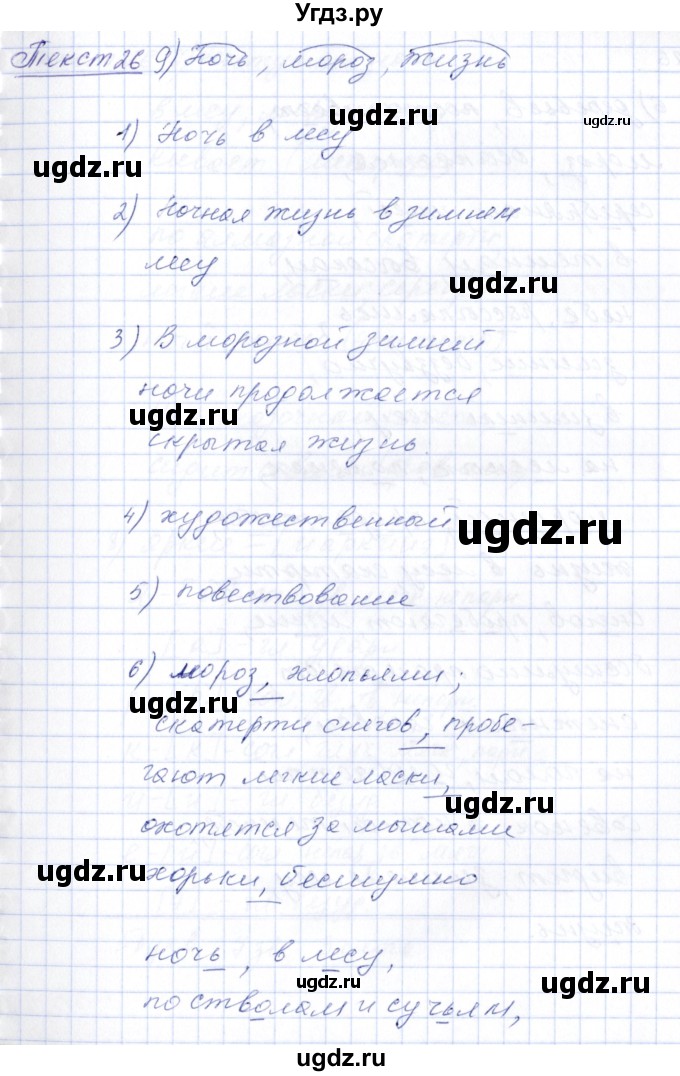 Угдз.ру
Текст 26 9) Ночь, мороз, жизнь
ugdz.ru
ugdz.ru
1) Ночь в лесу
ugdz.ru
2) Ночная жизнь в зимнем
лесу
ugdz.ru
3) В морозной зимней
ночи продолжается
ugdz.ru
скрытая жизнь.
4) художественный
ugdz.ru
5) повествование
ugdz.ru
6) мороз, хлопьями;
ugdz.ru
скатерти снегов, пробе-
гают легкие ласки,
ugdz.ru
охотятся за мышами
хорьки, бесшумно
ugdz.ru
ugdz.ru
ночь, в лесу,
ugdz.ru
ugdz.ru
по стволам и сучьям,
ugdz.ru